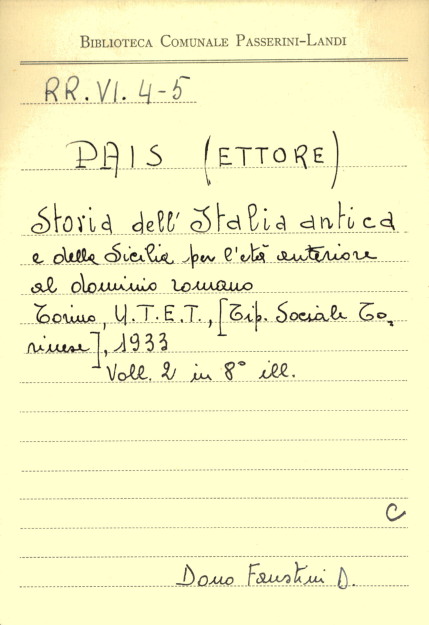 BIBLIOTECA COMUNALE PASSERINI-LANDI
RR.VI. 4-5
PAIS (ETTORE)
Storia dell'Italia antica
e della Sicilia per l'età anteriore
al dominio romano
Torino, U.T.E.T., [Tip. Sociale To,
rinese], 1933
Voll. 2 in 8° ill.
C
Dono Faustini D.